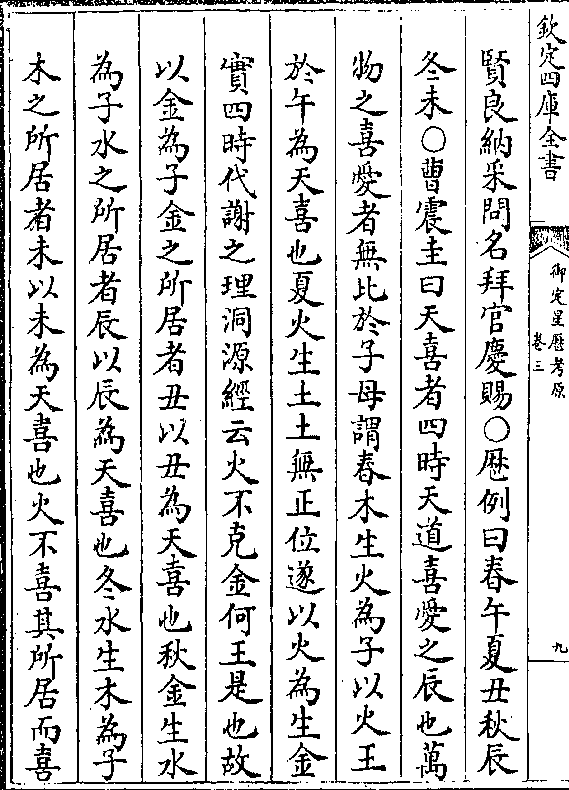 欽定四庫全書
御定星厯考原
卷三
九
賢良納采問名拜官慶賜○厯例曰春午夏丑秋辰
冬未○曹震圭曰天喜者四時天道喜愛之辰也萬
物之喜愛者無比於子母謂春木生火為子以火王
於午為天喜也夏火生土土無正位遂以火為生金
實四時代謝之理洞源經云火不克金何王是也故
以金為子金之所居者丑以丑為天喜也秋金生水
為子水之所居者辰以辰為天喜也冬水生木為子
木之所居者未以未為天喜也火不喜其所居而喜